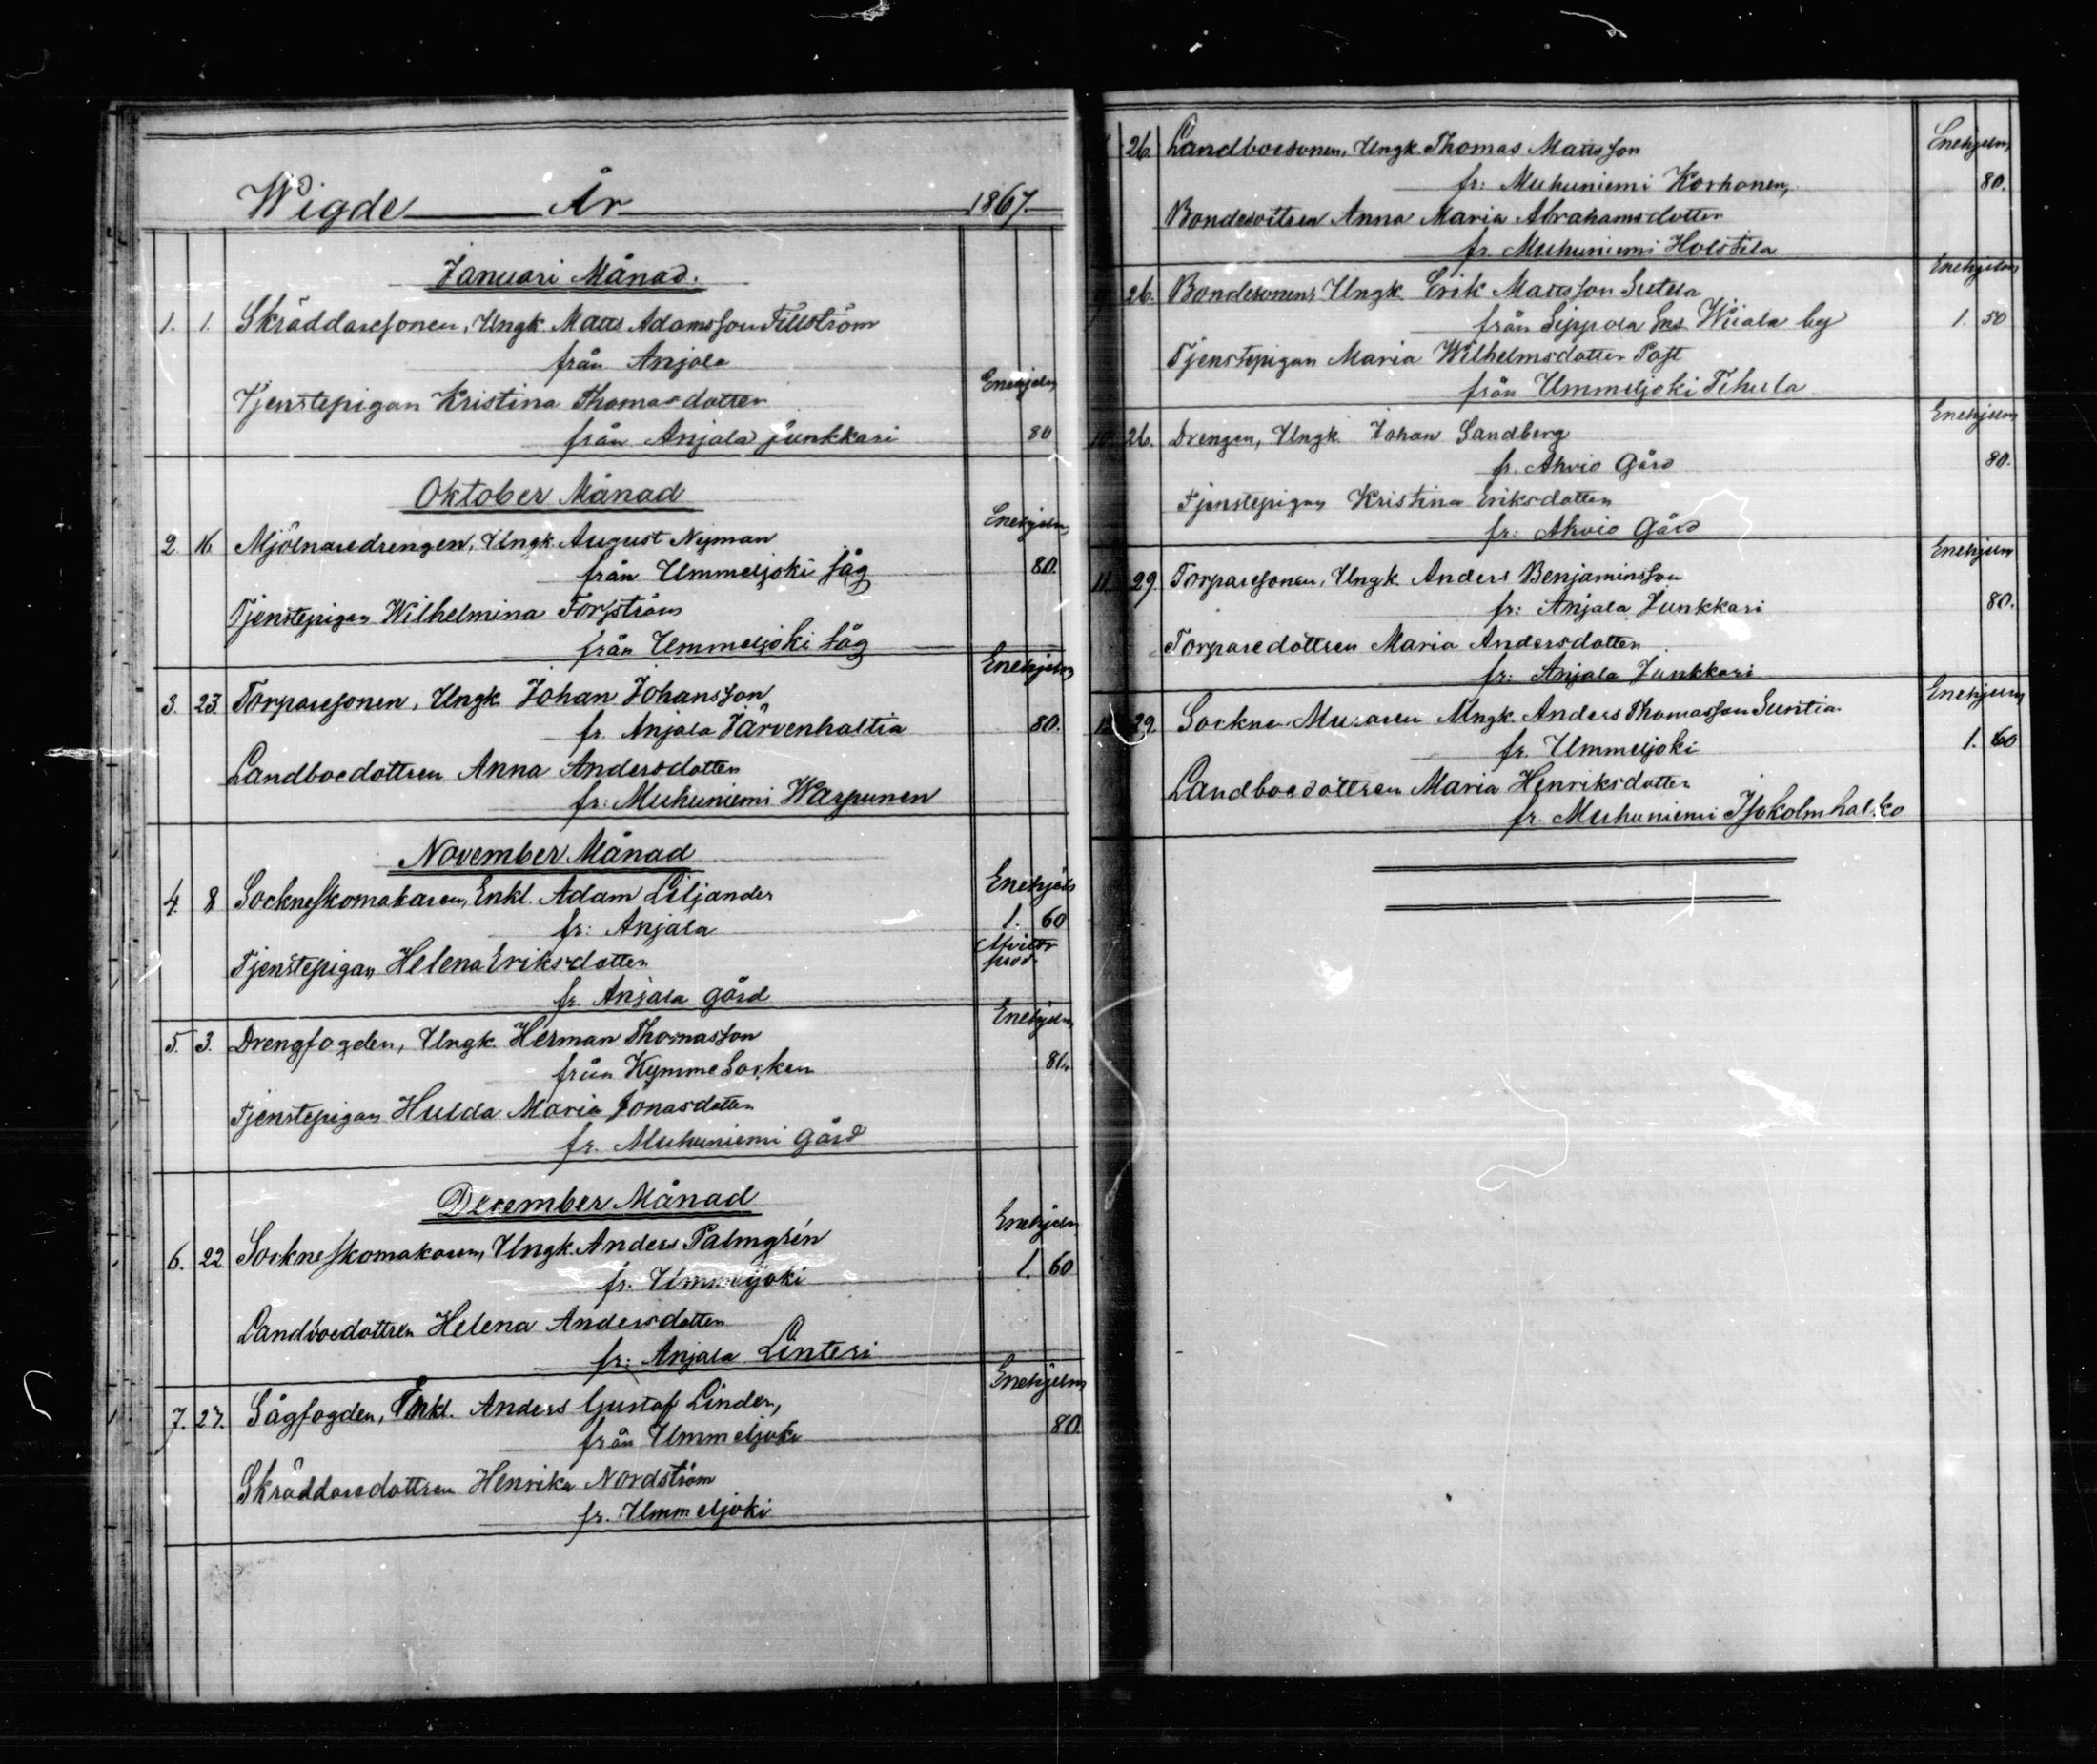 Wigde År 1867.
Januari Månad.
1. 1. Skräddaresonen, Ungk. Matts Adamsson Fillström
från Anjala
Tjenstepigan Kristina Thomasdotter Enehjelm
från Anjala Junkkari 80
Oktober Månad
2. 16 Mjölnaredrengen, Ungk. August Nyman Enehjelm
från Ummeljoki såg 80.
Tjenstepigan Wilhelmina Forsström
från Ummeljoki såg
3. 23. Torparesonen, Ungk. Johan Johansson Enehjelm
fr. Anjala Järvenhaltia 80.
Landboedottren Anna Andersdotter
fr: Muhuniemi Warpunen
November Månad
4. 8 Sockneskomakaren, Enkl. Adam Liljander Enehjelm
fr: Anjala 1. 60
Tjenstepigan Helena Eriksdotter
fr. Anjala gård
5. 3. Drengfogden, Ungk. Herman Thomasson Enehjelm
från Kymme Socken 80.
Tjenstepigan Hulda Maria Jonasdotter
fr. Muhuniemi gård
December Månad
6. 22. Sockneskomakaren, Ungk. Anders Palmgrén Enehjelm
fr. Ummeljoki 1. 60
Landboedottren Helena Andersdotter
fr: Anjala Linteri
7. 27. Sågfogden, Enkl. Anders Gustaf Linden, Enehjelm
från Ummeljoki 80.
Skräddaredottren Henrika Nordström
fr. Ummeljoki
26. Landboesonen, Ungk. Thomas Mattsson Enehjelm
fr: Muhuniemi Korhonen, 80.
Bondedottren Anna Maria Abrahamsdotter
fr. Muhuniemi Holstila
26. Bondesonen, Ungk. Erik Mattsson Sutela Enehjelm
från Sippola Sns Wiiala by 1. 50
Tjenstepigan Maria Wilhelmsdotter Post
från Ummeljoki Tihula
10. 26. Drengen, Ungk. Johan Sandberg Enehjelm
fr. Ahvio Gård 80.
Tjenstepigan Kristina Eriksdotter
fr: Ahvio Gård
11. 29. Torparesonen, Ungk. Anders Benjaminsson Enehjelm
fr: Anjala Junkkari 80.
Torparedottren Maria Andersdotter
fr: Anjala Junkkari
12. 29. Sockne Muraren Ungk. Anders Thomasson Suntia Enehjelm
fr. Ummeljoki 1. 60
Landboedottren Maria Henriksdotter
fr. Muhuniemi Isokolmhalko